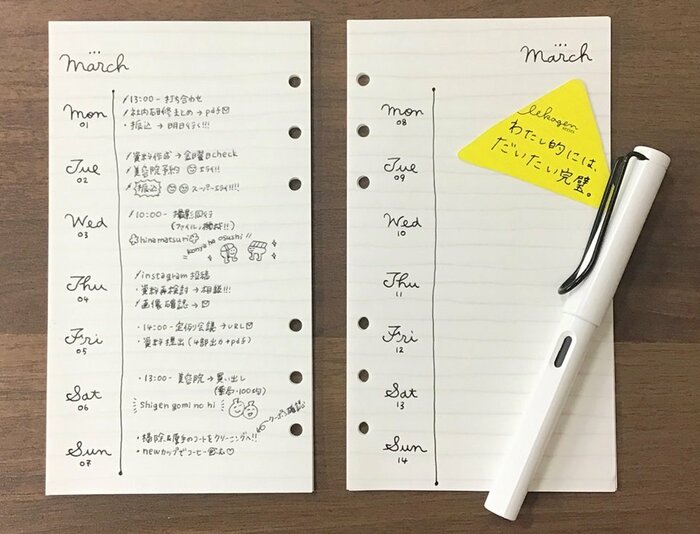 march
Mon
01
/ 13:00- 打ち合わせ
/ 社内研修まとめ → pdf✉
・振込 → 明日行く!!!
Tue
02
/ 資料作成 → 金曜日check
/ 美容院予約 エライ!!
/ 振込 スーパーエライ!!!!
Wed
03
/ 10:00- 撮影同行
(ファイル)
hinamatsuri
konya ha osushi
Thu
04
/ instagram 投稿
・資料再検討 → 相談!!!
/ 画像確認 → ✉
Fri
05
・14:00- 定例会議 → URL✉
・資料提出 (4部出力+pdf)
Sat
06
・13:00- 美容院 → 買い出し
(薬局・100均)
shigen gomi no hi
クーポン確認
Sun
07
・掃除&厚手のコートをクリーニングへ!!
・newカップでコーヒー飲む♡
march
Mon
08
Tue
09
Wed
10
Thu
11
Fri
12
Sat
13
Sun
14
わたし的には、
だいたい完璧。